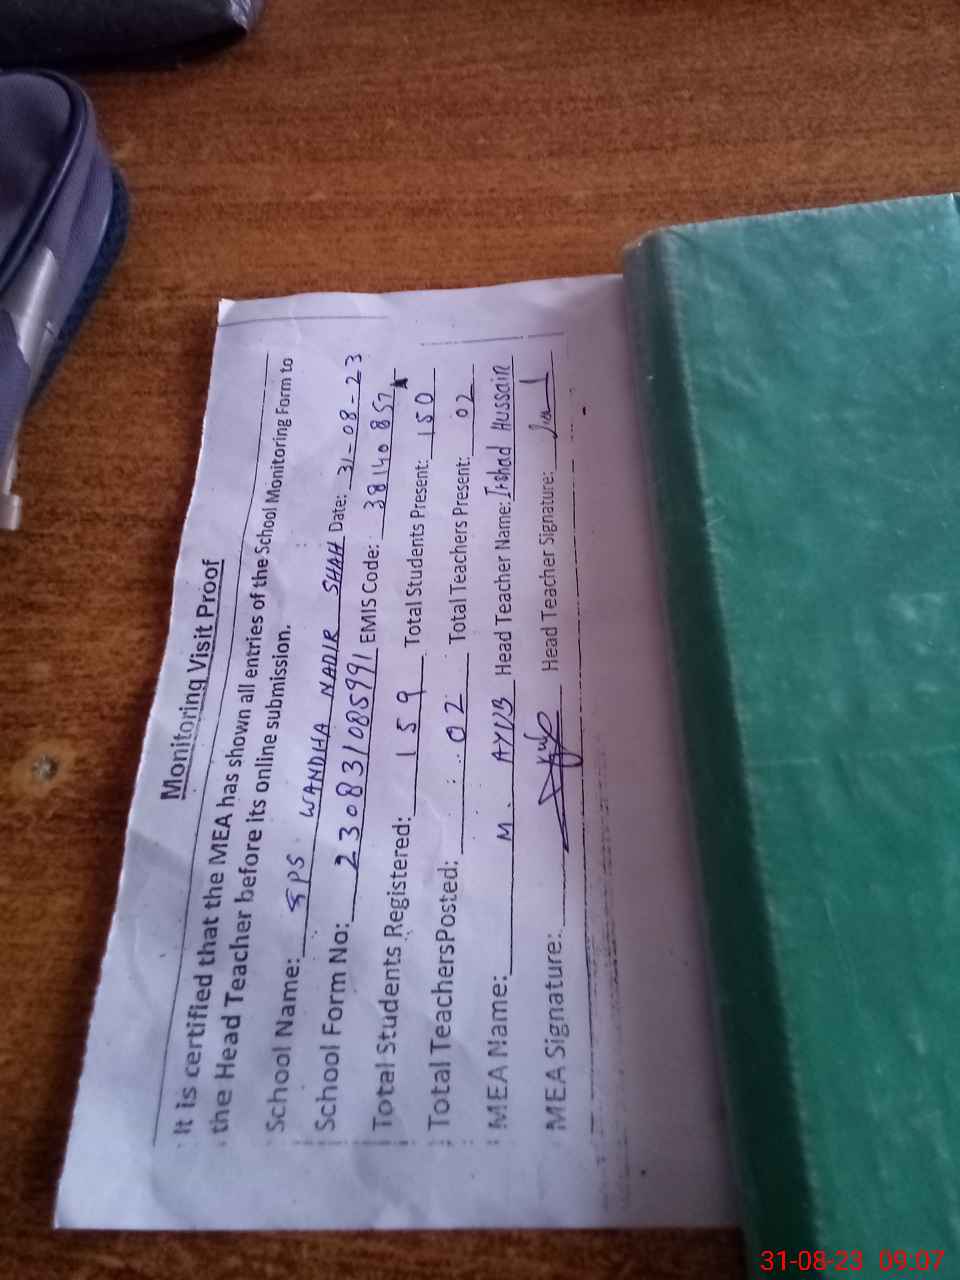 Monitoring Visit Proof
It is certified that the MEA has shown all entries of the School Monitoring Form to
the Head Teacher before its online submission.
School Name: GPS WANDHA NADIR SHAH Date: 31-08-23
School Form No: 230831085991 EMIS Code: 38140857
Total Students Registered: 159 Total Students Present: 150
Total TeachersPosted: 02 Total Teachers Present: 02
MEA Name: M. AYUB Head Teacher Name: Irshad Hussain
MEA Signature: Head Teacher Signature:
31-08-23 09:07